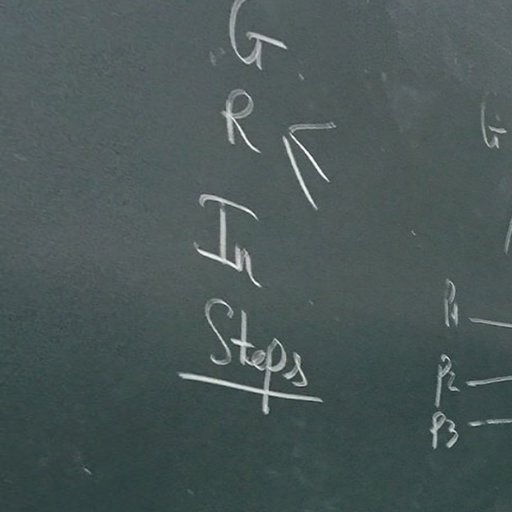 G
R ≤
In
Steps
G
P1 —
P2 —
P3 —